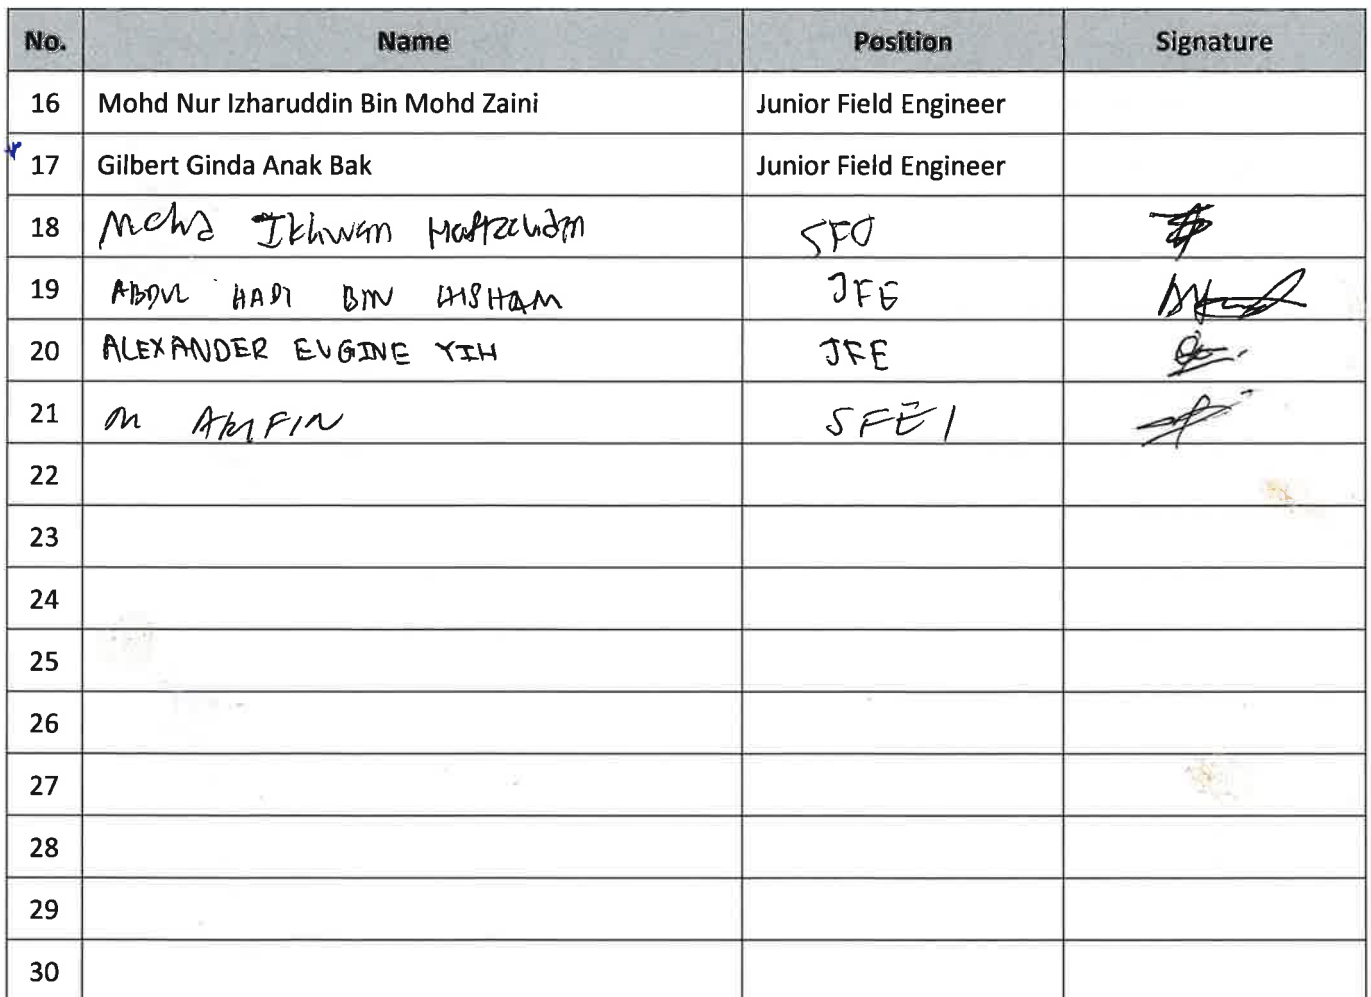 No. Name Position Signature
16 Mohd Nur Izharuddin Bin Mohd Zaini Junior Field Engineer
17 Gilbert Ginda Anak Bak Junior Field Engineer
18 Mohd Ikhwan SFO
19 ABDUL HADI BIN HISHAM JFE
20 ALEXANDER EUGINE YIH JFE
21 M SFE 1
22
23
24
25
26
27
28
29
30